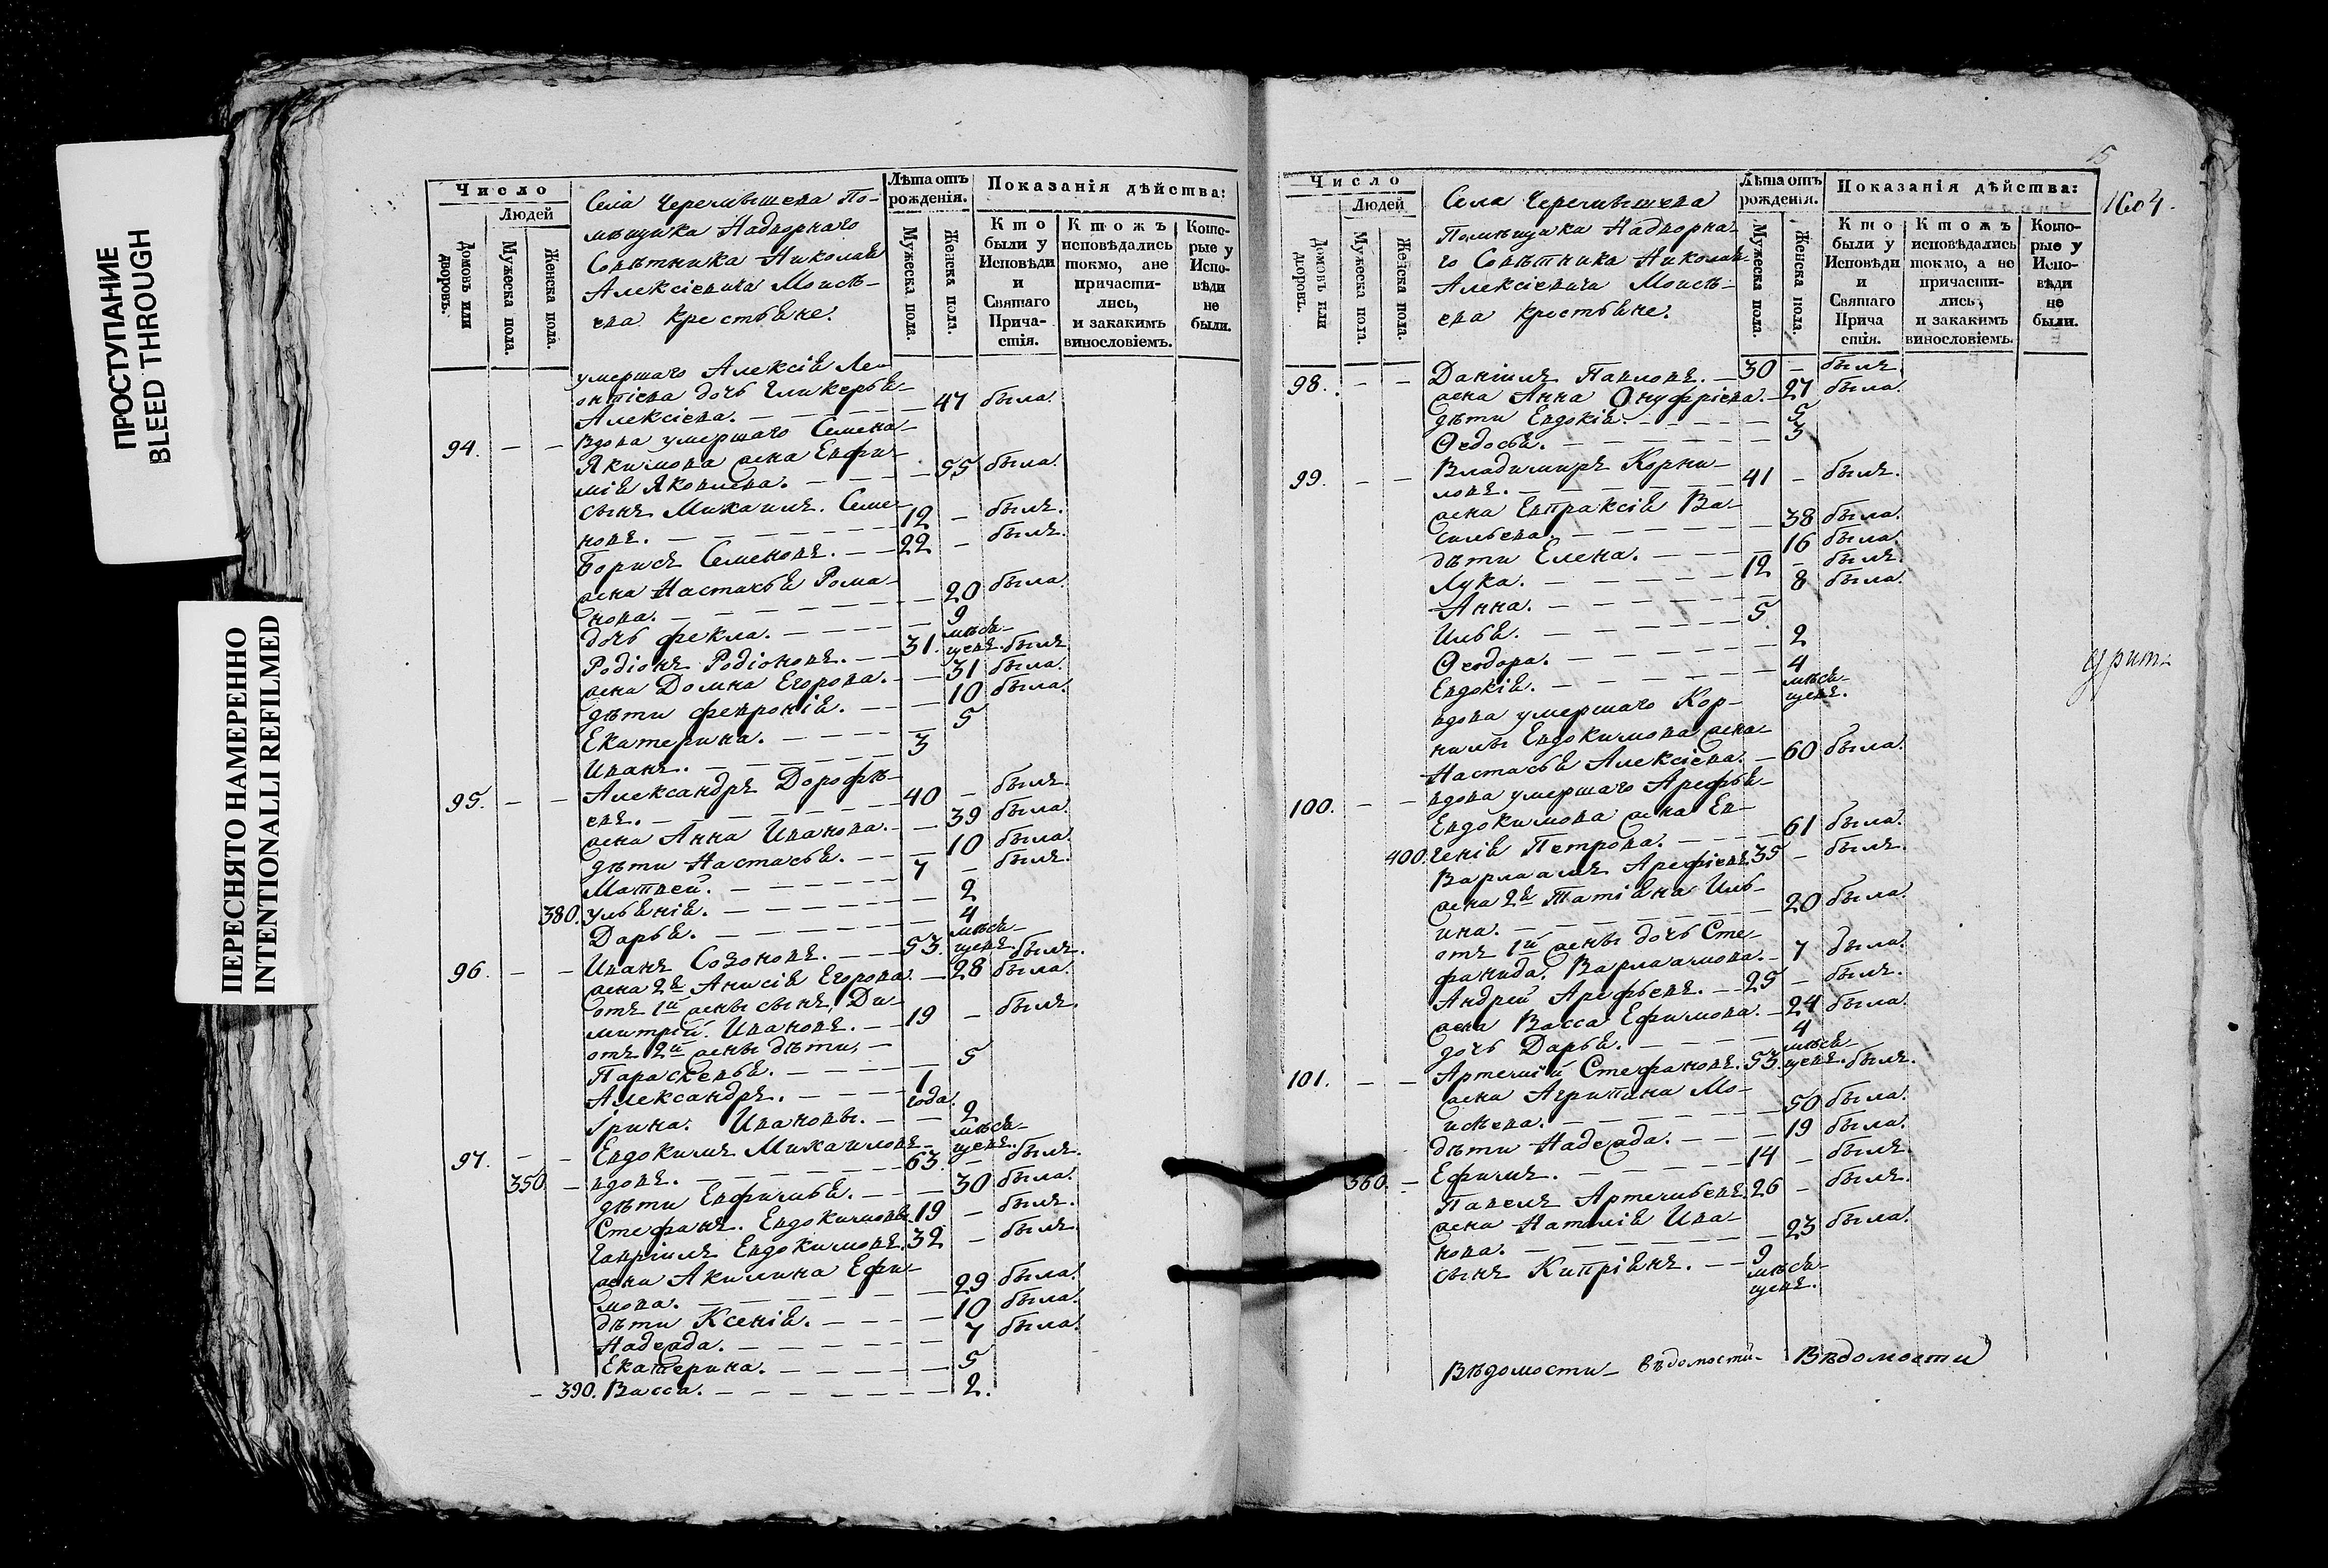 ПРОСТУПАНИЕ
BLEED THROUGH
ПЕРЕСНЯТО НАМЕРЕННО
INTENTIONALLI REFILMED
Число
Людей
Домовъ или дворовъ.
Мужеска пола.
Женска пола.
Села Черемышева По-
мѣщика Надворнаго
Совѣтника Николая
Алексіевича Моисѣ-
ева крестьяне.
Лѣта отъ рожденія.
Мужеска пола.
Женска пола.
Показанія дѣйства:
Кто были у Исповѣди и Святаго Прича-стія.
Ктожъ исповѣдались токмо, ане причасти-лись, и закакимъ винословіемъ.
Кото-рые у Испо-вѣди не были.
умершаго Алексія Ле-
онтіева дочь Гликерья
Алексіева. 47 была.
94. вдова умершаго Семена
Якимова жена Евфи-
мія Яковлева. 55 была.
сынъ Михаилъ Семе-
новъ. 12 - былъ.
Борисъ Семеновъ. 22 - былъ.
жена Настасья Рома-
нова. 20 была.
дочь Фекла. 9 мѣся-
цевъ.
Родіонъ Родіоновъ. 31. былъ.
жена Домна Егорова. 31 была.
дѣти Февронія. 10 была.
Екатерина. 5
Иванъ. 3
95. Александръ Дорофѣ-
евъ. 40 - былъ.
жена Анна Иванова. 39 была.
дѣти Настасья. 10 была.
Матвей. 7 - былъ.
380. Ульянія. 2
Дарья. 4 мѣся-
цевъ.
96. Иванъ Созоновъ. 53. былъ.
жена 2я Анисія Егорова. 28 была.
отъ 1й жены сынъ Ди-
митрій Ивановъ. 19 - былъ.
отъ 2й жены дѣти,
Параскевья. 5
Александръ. 1 года.
Ирина. Ивановы. 2 мѣся-
цевъ.
97. Евдокимъ Михаиловъ
350. вдовъ. 63 - былъ.
дѣти Евфимья. 30 была.
Стефанъ. Евдокимовы 19 - былъ.
Гавріилъ Евдокимовъ. 32 - былъ.
жена Акилина Ефи-
мова. 29 была.
дѣти Ксенія. 10 была.
Надежда. 7 была.
Екатерина. 5
390. Васса. 2.
15
1604.
Число
Людей
Домовъ или дворовъ.
Мужеска пола.
Женска пола.
Села Черемышева
Помѣщика Надворна-
го Совѣтника Николая
Алексіевича Моисѣ-
ева крестьяне.
Лѣта отъ рожденія.
Мужеска пола.
Женска пола.
Показанія дѣйства:
Кто были у Исповѣди и Святаго Прича стія.
Ктожъ исповѣдались токмо, а не причасти-лись, и закакимъ винословіемъ.
Кото-рые у Испо-вѣди не были.
98. Даніилъ Павловъ. 30 - былъ.
жена Анна Онуфріева. 27 была.
дѣти Евдокія. 5
Ѳедосья. 3
99. Владимиръ Корни-
ловъ. 41 - былъ.
жена Евпраксія Ва-
сильева. 38 была.
дѣти Елена. 16 была.
Лука. 12 - былъ.
Анна. 8 была.
Илья. 5.
Ѳеодора. 2
Евдокія. 4 мѣся-
цевъ.
вдова умершаго Кор-
нилы Евдокимова жена
Настасья Алексіева. 60 была.
100. вдова умершаго Арефья
Евдокимова жена Ев-
400. генія Петрова. 61 была.
Варлаамъ Арефіевъ. 35 - былъ.
жена 2я Татіяна Иль-
ина. 20 была.
отъ 1й жены дочь Сте-
фанида. Варлаамова. 7 была.
Андрей Арефьевъ. 25 - былъ.
жена Васса Ефимова. 24 была.
дочь Дарья. 4 мѣся-
цевъ.
101. Артемій Стефановъ. 53. былъ.
жена Агрипина Мо-
исѣева. 50 была.
дѣти Надежда. 19 была.
360. Ефимъ. 14 - былъ.
Павелъ Артемьевъ. 26 - былъ.
жена Наталія Ива-
нова. 23 была.
сынъ Кипріянъ. 9 мѣся-
цевъ.
Вѣдомости вѣдомости Вѣдомости